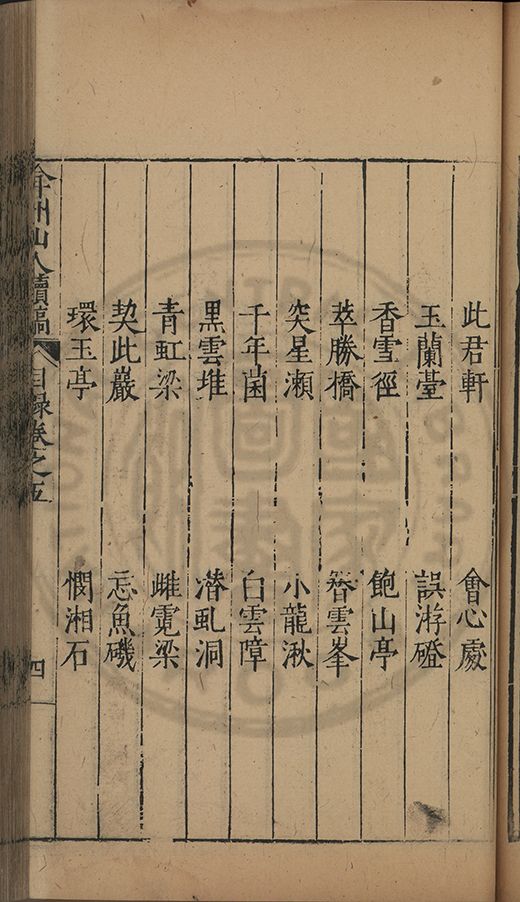 此君軒 會心處
玉蘭臺 誤游磴
香雪徑 飽山亭
萃勝橋 簪雲峯
突星瀬 小龍湫
千年菌 白雲障
黒雲堆 潜虬洞
青虹梁 雌霓梁
契此巖 忘魚磯
環玉亭 憫湘石
弇州山人續稿 目録卷之五 四